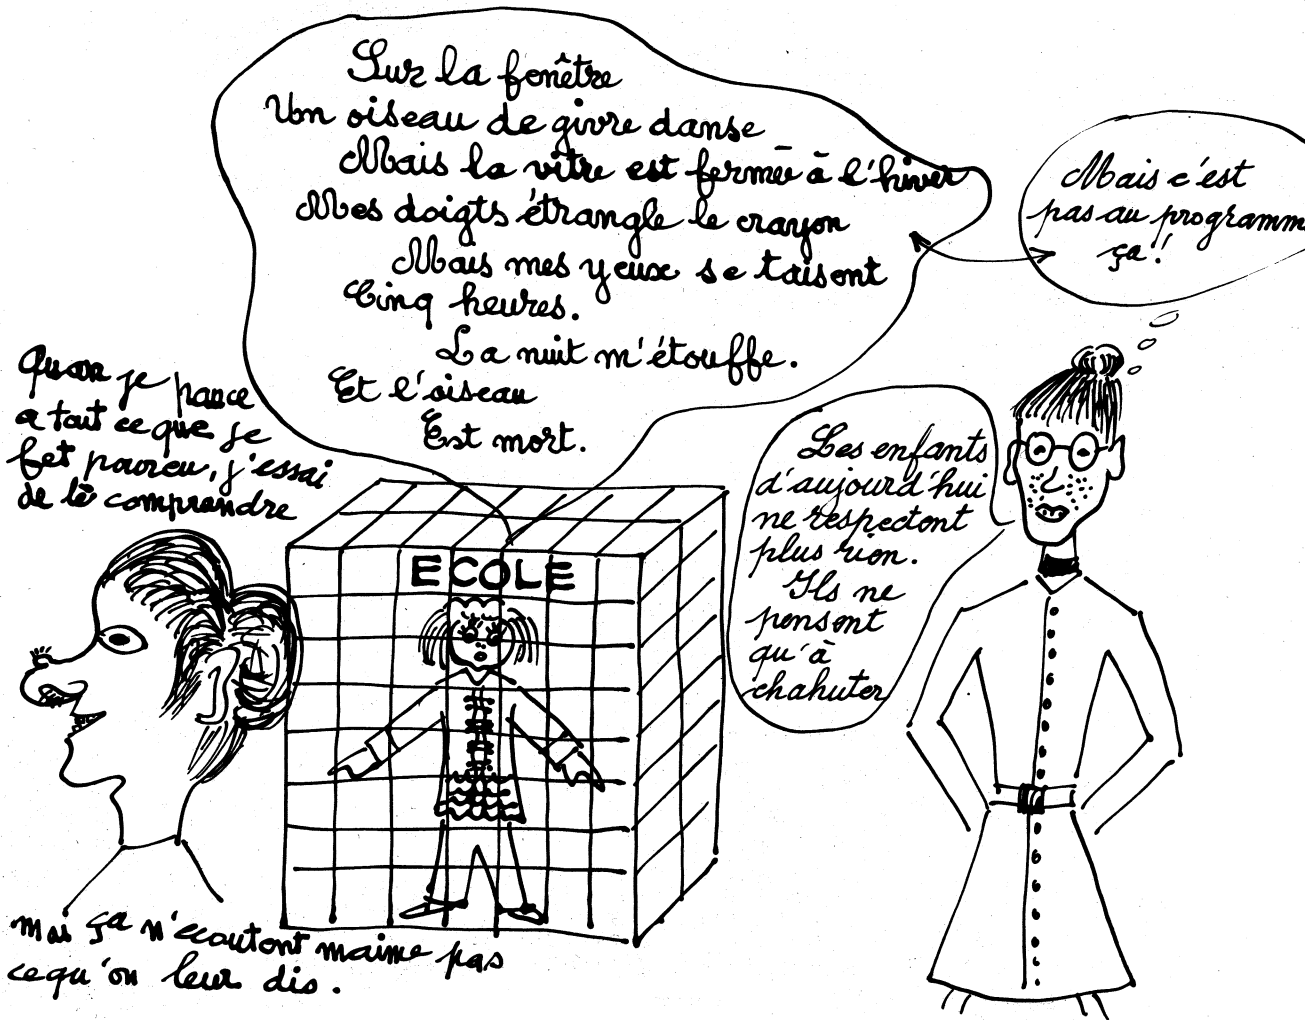 Sur la fenêtre
Un oiseau de givre danse
Mais la vitre est fermée à l'hiver
Mes doigts étrangle le crayon
Mais mes yeux se taisent
Cinq heures.
La nuit m'étouffe.
Et l'oiseau
Est mort.
Mais c'est
pas au programm
ça!
Quan je pance
a tout ce que je
fet poureu, j'essai
de lé comprendre
Les enfants
d'aujourd'hui
ne respectent
plus rien.
Ils ne
pensent
qu'à
chahuter
ECOLE
mai ça n'écoutent maime pas
cequ'on leur dis.